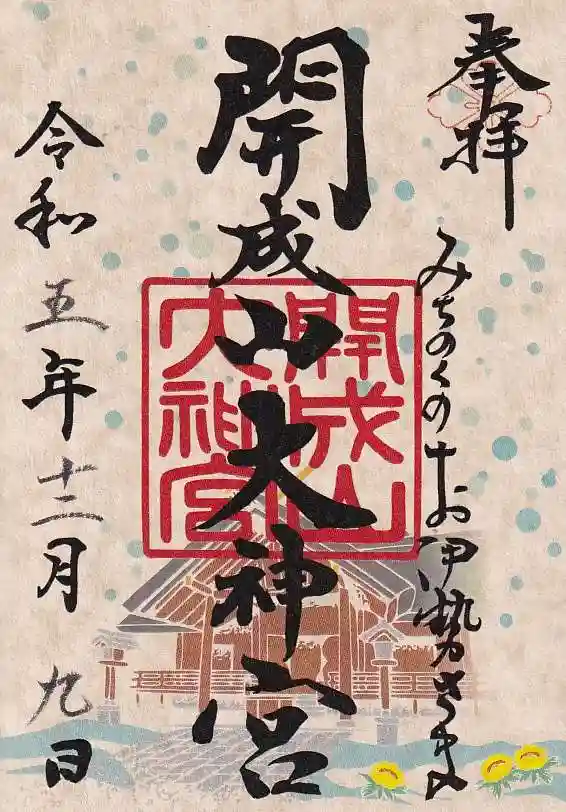 奉拝
みちのくのおお伊勢さま
開成山大神宮
開成山
大神宮
令和五年十二月九日